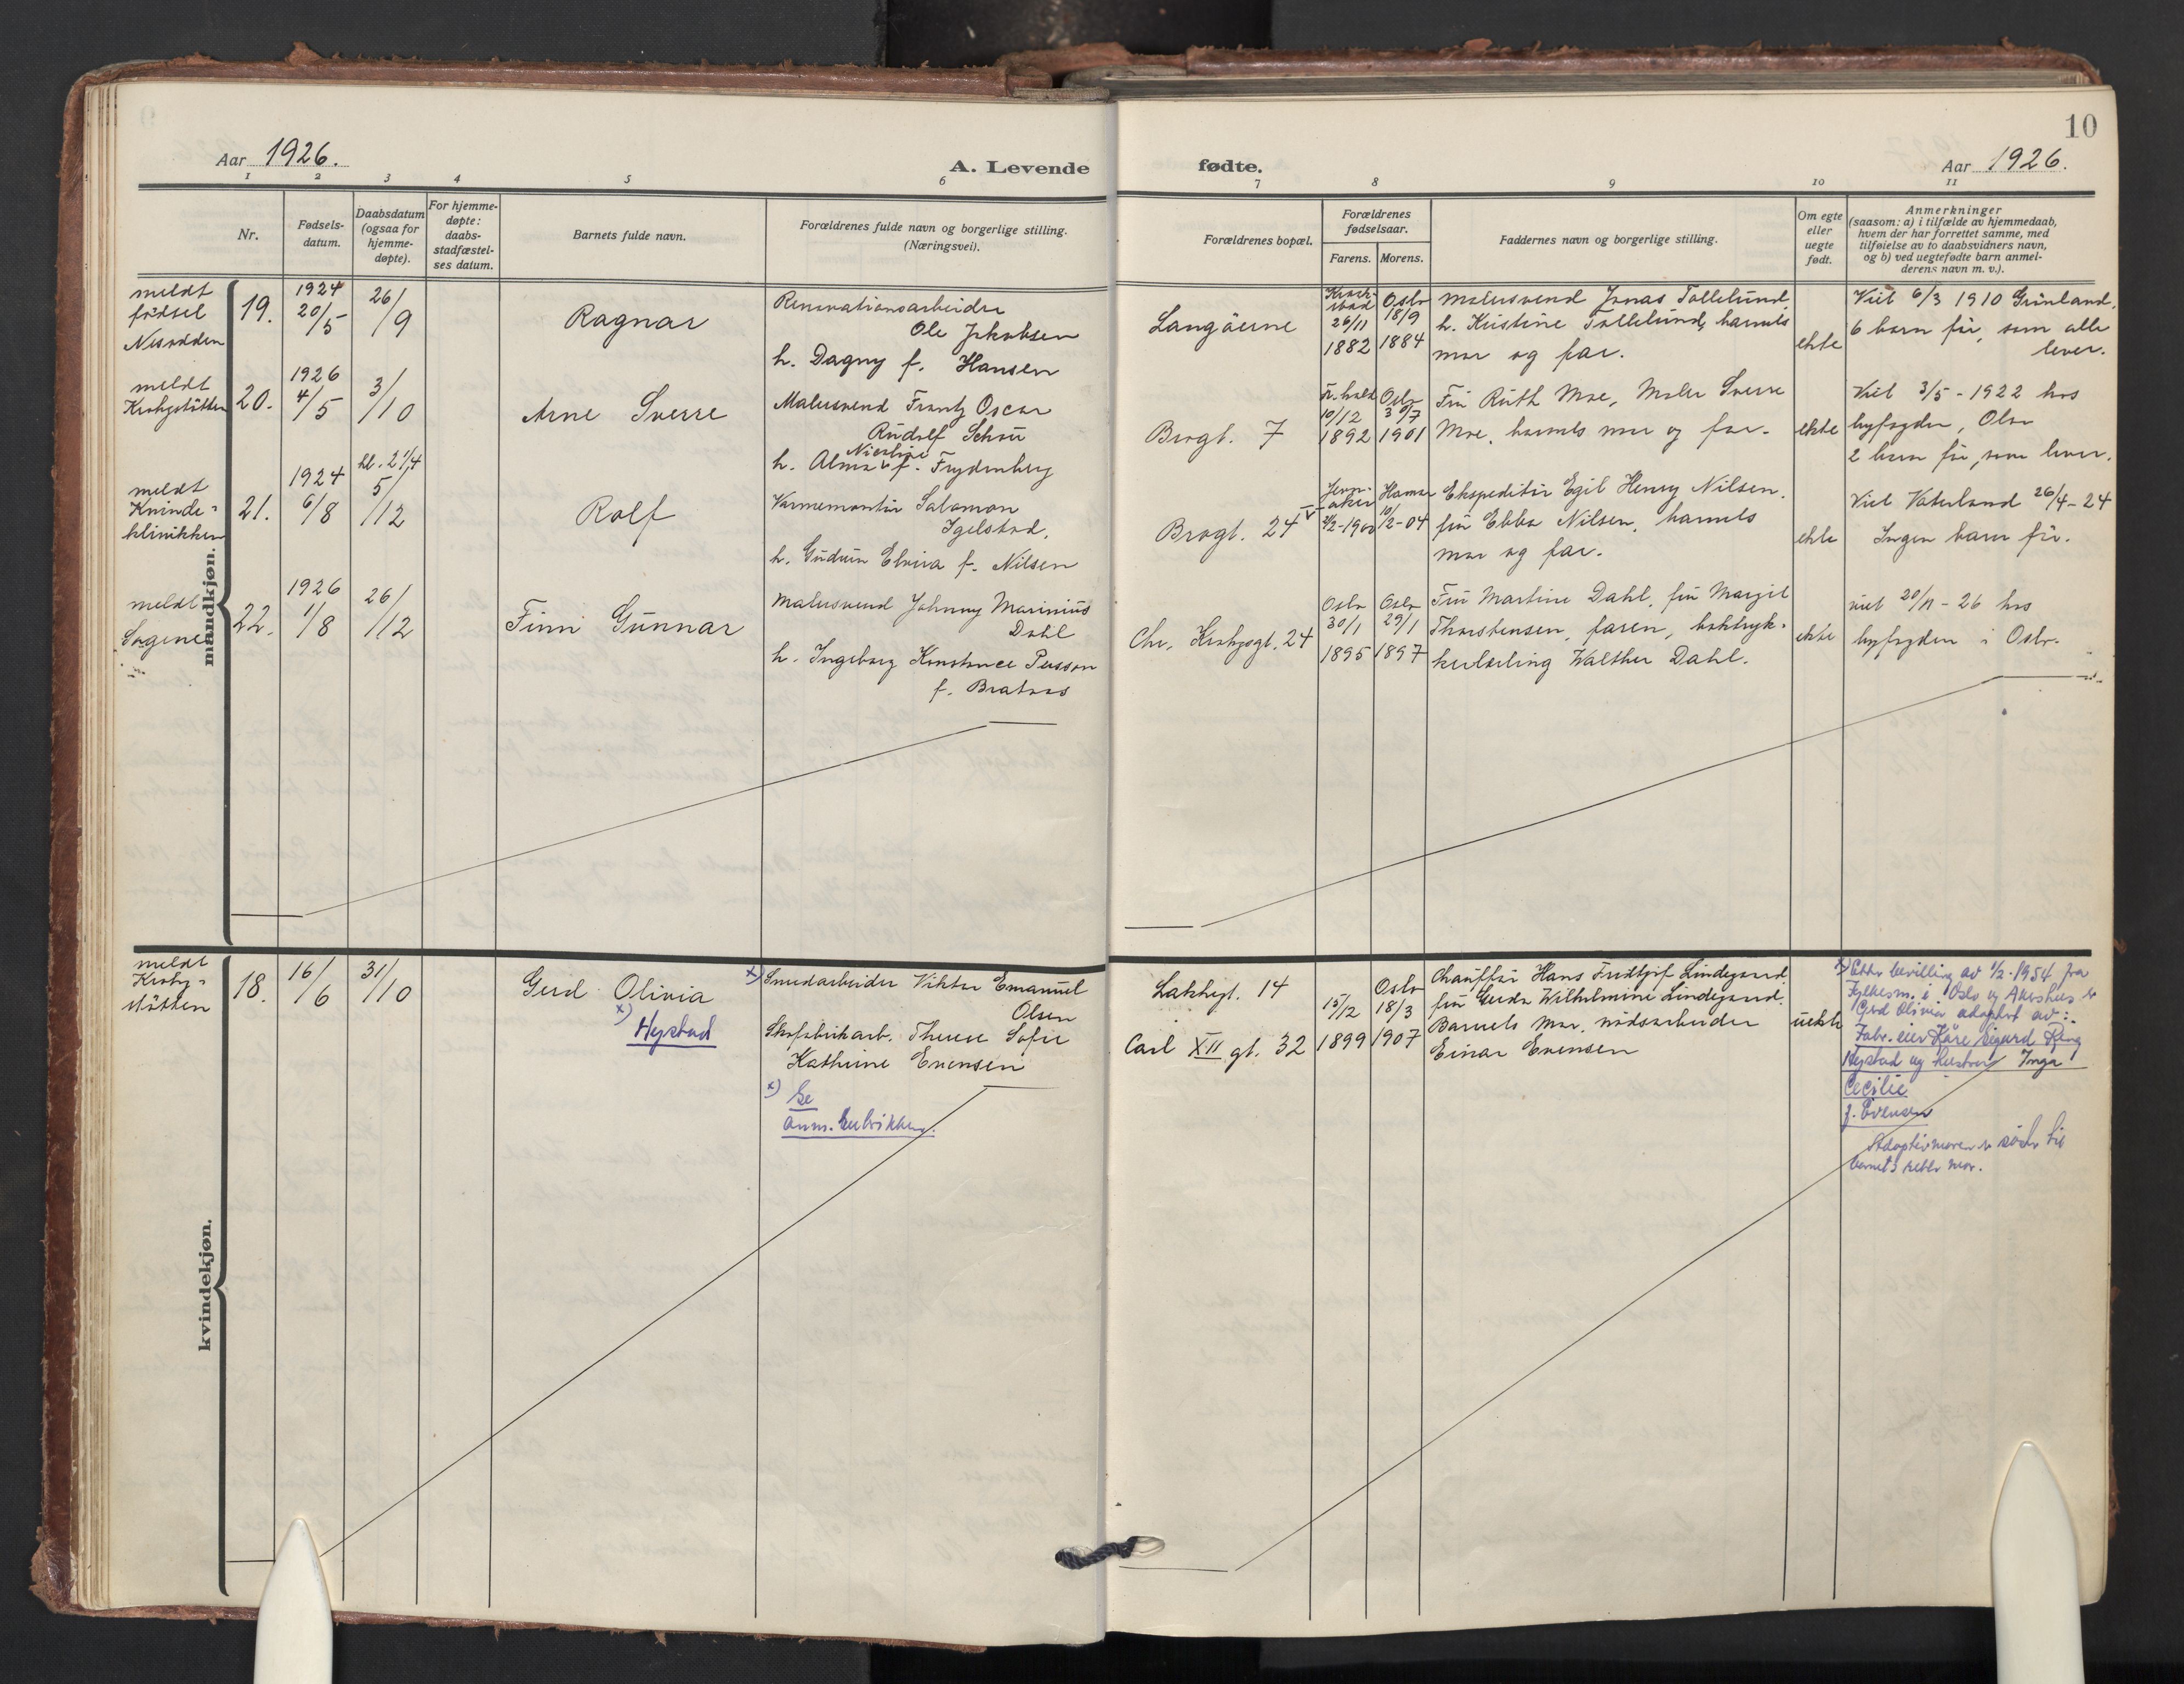 10
Aar 1926.
A. Levende
fødte.
Aar 1926.
1 2 3 4 5 6
7 8 9 10 11
Nr.
Fødsels-
datum.
Daabsdatum
(ogsaa for
hjemme-
døpte).
For hjemme-
døpte:
daabs-
stadfæstel-
ses datum.
Barnets fulde navn.
Forældrenes fulde navn og borgerlige stilling.
(Næringsvei).
Forældrenes bopæl.
Forældrenes
fødselsaar.
Farens. Morens.
Faddernes navn og borgerlige stilling.
Om egte
eller
uegte
født.
Anmerkninger
(saasom: a) i tilfælde av hjemmedaab,
hvem der har forrettet samme, med
tilføielse av to daabsvidners navn,
og b) ved uegtefødte barn anmel-
derens navn m. v.).
mandkjøn.
meldt
födsel
Nesodden
19.
1924
20/5
26/9
Ragnar
Renovationsarbeider
Ole Jakobsen
h. Dagny f. Hansen
Langöerne
26/11
1882
Oslo
18/9
1884
Malersvend Jonas Tollelund,
h. Kristine Tollelund, barnets
mor og far.
ekte
Viet 6/3 1910 Grönland.
6 barn för, som alle
lever.
meldt
Krohgstötten
20.
1926
4/5
3/10
Arne Sverre
Malersvend Frantz Oscar
Rudolf Schou
h. Alma Nicoline f. Frydenberg
Brogt. 7
10/12
1892
Oslo
30/7
1901
Fru Ruth Moe, Maler Sverre
Moe, barnets mor og far.
ekte
Viet 3/5 - 1922 hos
byfogden, Oslo
2 barn för, som lever.
meldt
Kvinde-
klinikken
21.
1924
6/8
kl. 2 1/4
5/12
Rolf
Varmemontör Salomon
Igelstad,
h. Gudrun Elvira f. Nilsen
Brogt. 24
Hamar
10/2-04
Ekspeditör Egil Henry Nilsen,
fru Ebba Nilsen, barnets
mor og far.
ekte
Viet Vaterland 26/4-24
Ingen barn för.
meldt
Sagene
22.
1926
1/8
26/12
Finn Gunnar
Malersvend Johnny Marinius
Dahl
h. Ingeborg Konstance Persson
f. Brataas
Chr. Krohgsgt. 24
Oslo
30/1
1895
Oslo
29/1
1897
Fru Martine Dahl, fru Margit
Thorstensen, faren, boktryk-
kerlærling Walther Dahl.
ekte
viet 20/11 - 26 hos
byfogden i Oslo.
kvindekjøn.
meldt
Krohg-
stötten
18.
16/6
31/10
Gerd Olivia
x)
Hystad
x) Smedarbeider Viktor Emanuel
Olsen
Skofabrikarb. Therese Sofie
Kathrine Evensen
x) Se
anm. rubrikken.
Lakkegt. 14
Carl XII gt. 32
15/12
1899
Oslo
18/3
1907
Chauffør Hans Fridtjof Lindegaard,
fru Gerda Wilhelmine Lindegaard.
Barnets mor, nødsarbeider
Einar Evensen
uekte
x) Etter bevilling av 1/2-1954 fra
Fylkesm. i Oslo og Akershus er
Gerd Olivia adoptert av:
Fabr. eier Kåre Sigurd Ring
Hystad og hustru Inga
Cecilie
f. Evensen
Adoptivmoren er søster til
barnets rette mor.